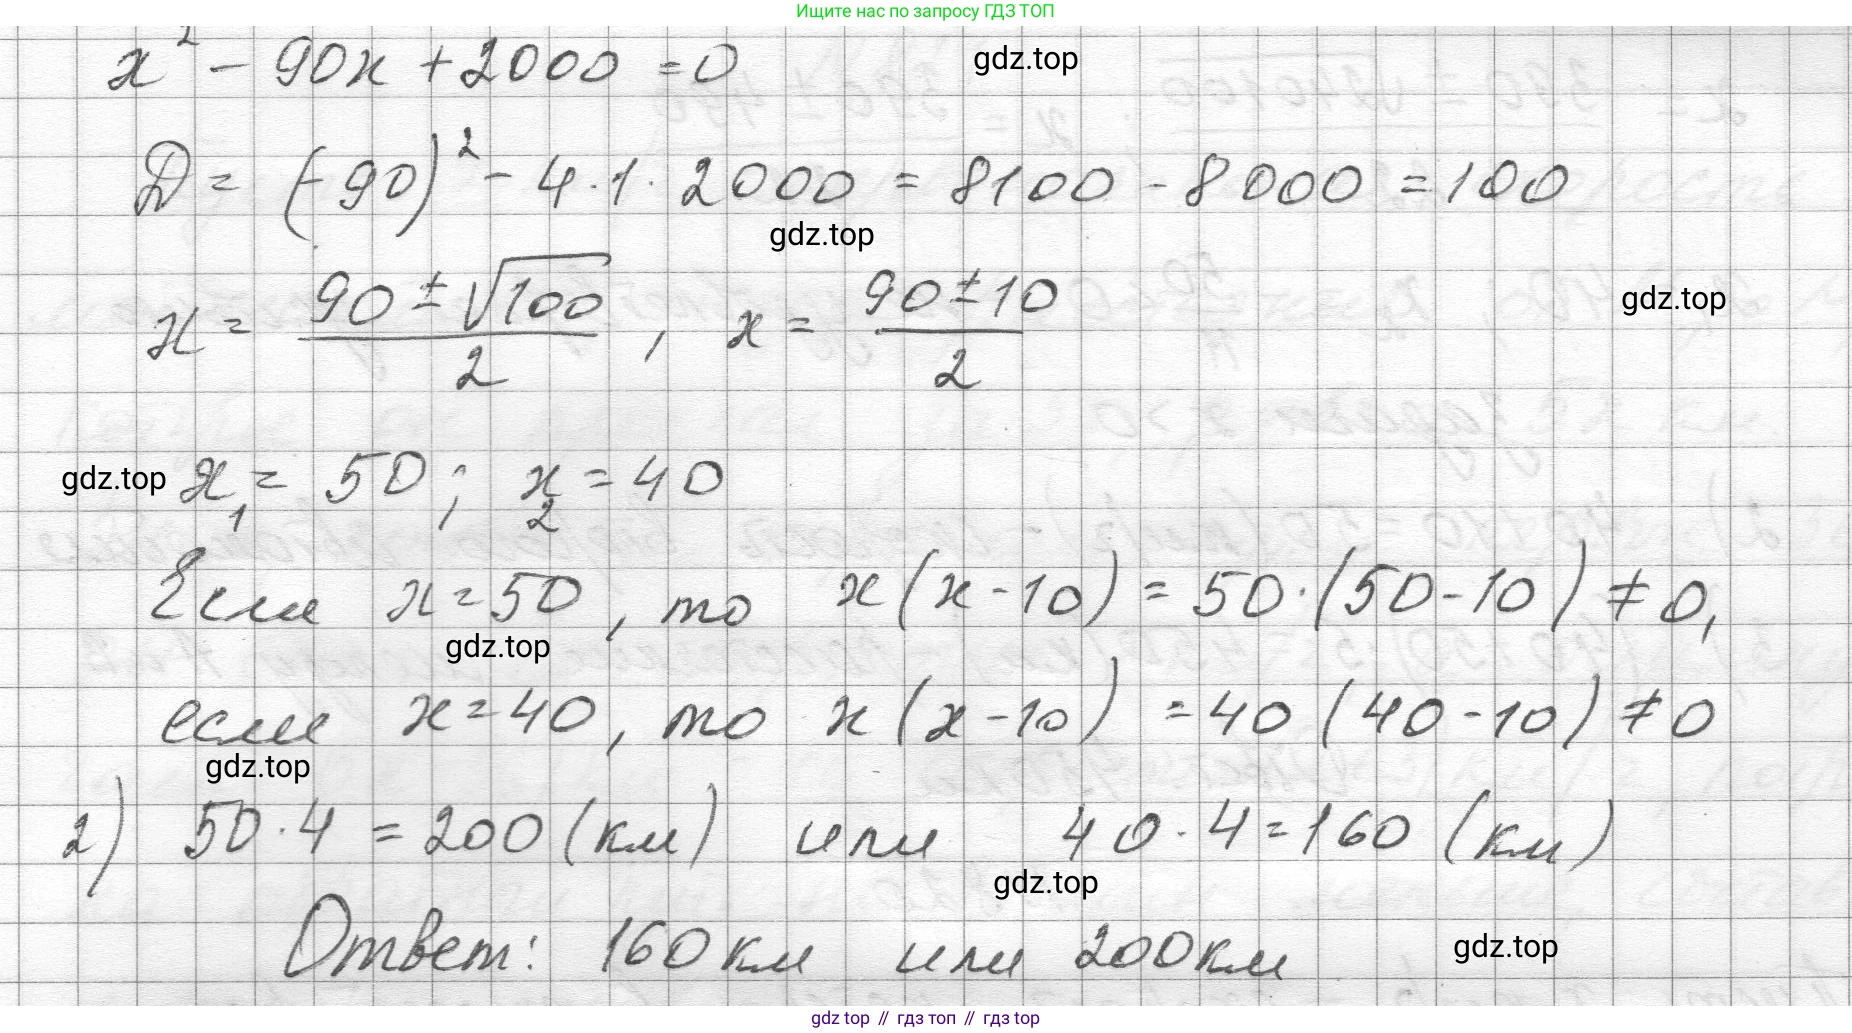 Ищите нас по запросу ГДЗ ТОП
x² - 90x + 2000 = 0
gdz.top
Д = (-90)² - 4·1·2000 = 8100 - 8000 = 100
gdz.top
x = (90 ± √100)/2, x = (90 ± 10)/2
gdz.top
gdz.top
x₁ = 50; x₂ = 40
Если x = 50, то x(x - 10) = 50·(50 - 10) ≠ 0,
gdz.top
если x = 40, то x(x - 10) = 40(40 - 10) ≠ 0
gdz.top
2) 50·4 = 200 (км) или 40·4 = 160 (км)
gdz.top
Ответ: 160 км или 200 км
gdz.top
gdz top // гдз топ // гдз top